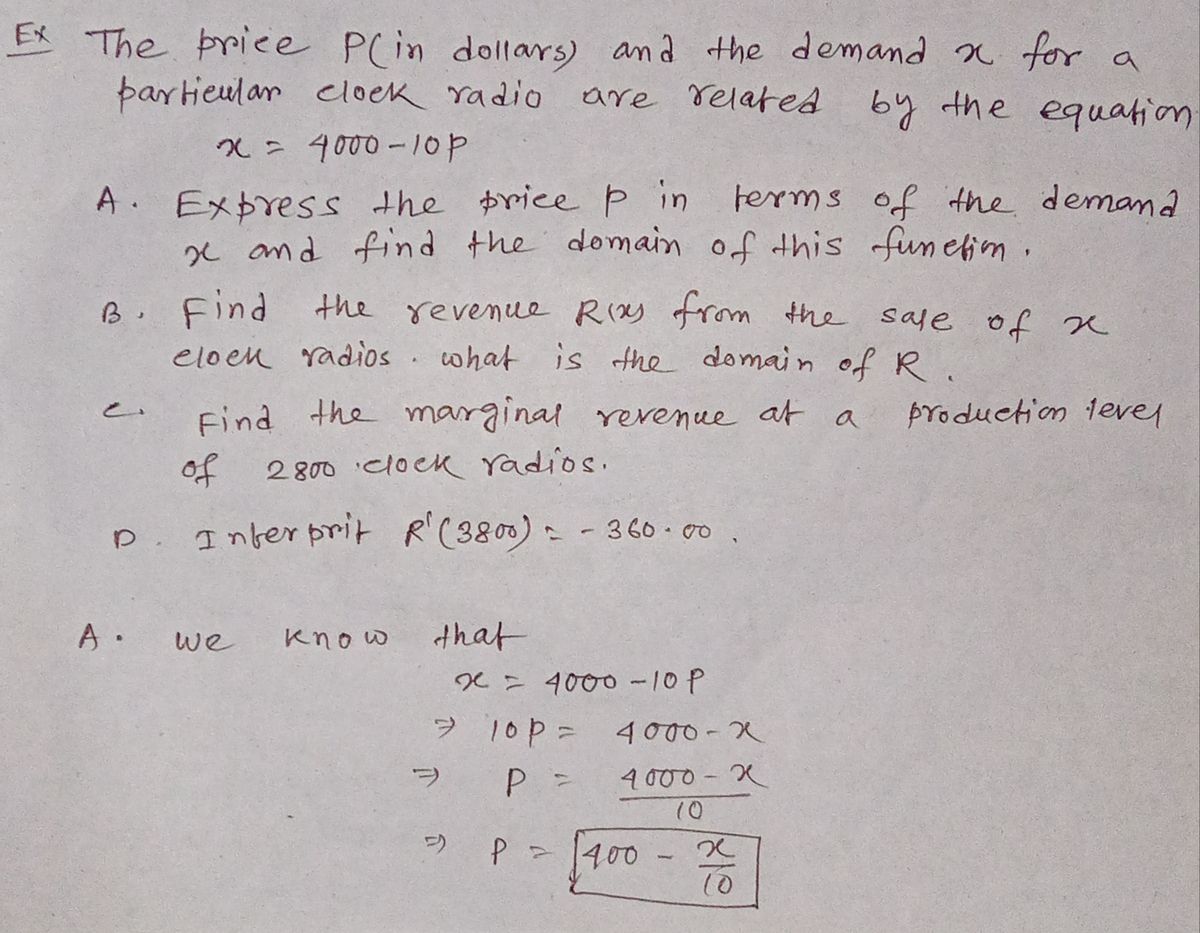 Ex The price P(in dollars) and the demand x for a
particular clock radio are related by the equation
x = 4000 - 10P
A. Express the price P in terms of the demand
x and find the domain of this function.
B. Find the revenue R(x) from the sale of x
clock radios. what is the domain of R.
C. Find the marginal revenue at a production level
of 2800 clock radios.
D. Interprit R'(3800) = - 360.00.
A. we know that
x = 4000 - 10P
⇒ 10P = 4000 - x
⇒ P = 4000 - x / 10
⇒ P = 400 - x/10